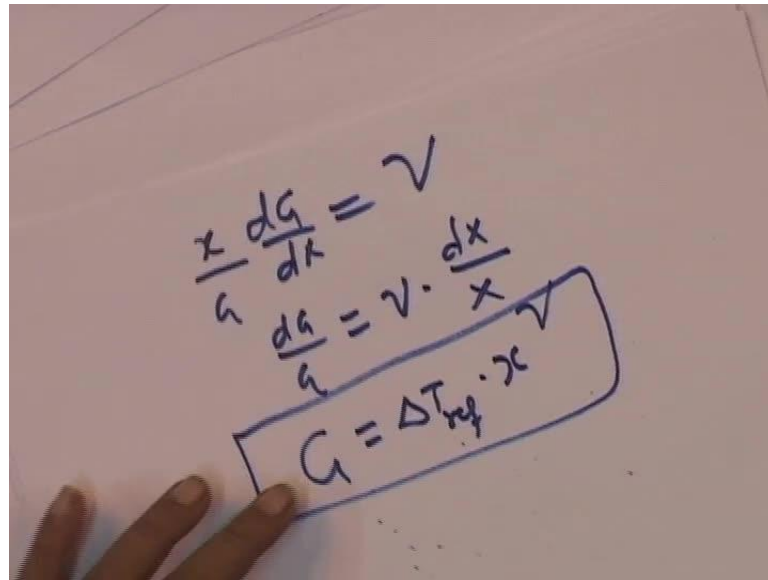 x/G dG/dx = ν
dG/G = ν · dx/x
G = ΔT_ref · x^ν